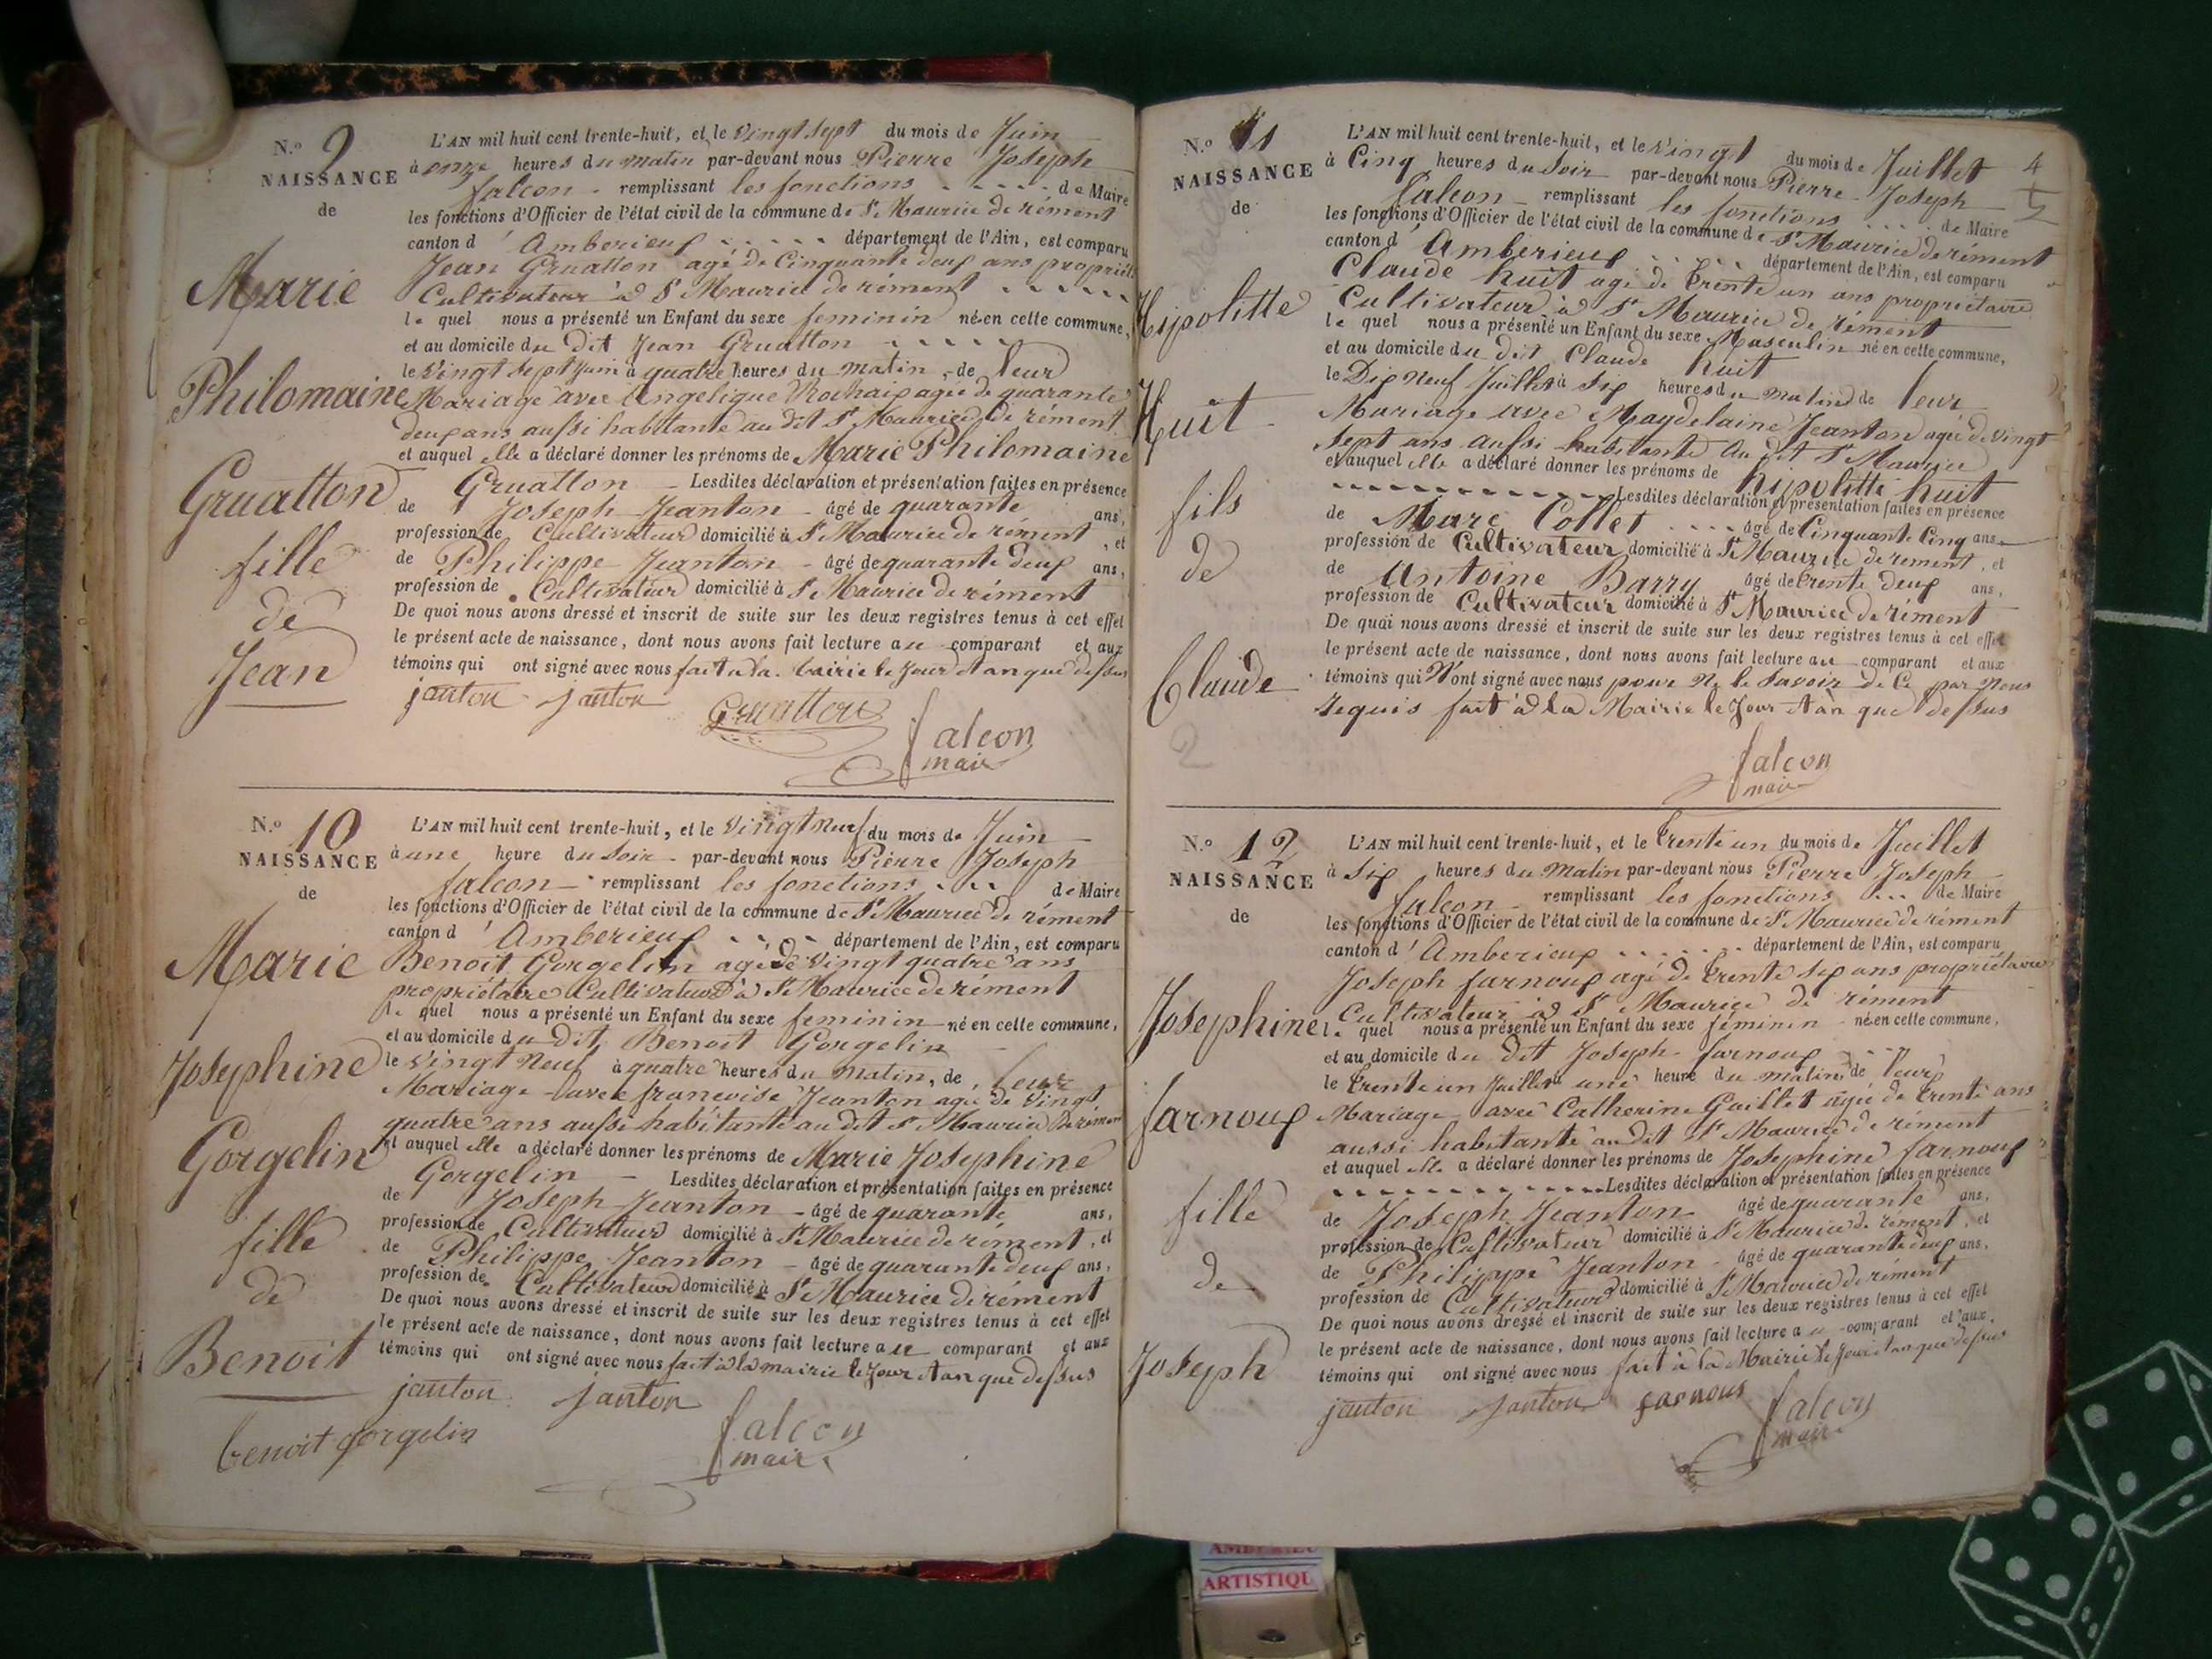 N.o 9
NAISSANCE
de
Marie
Philomaine
Gruatton
fille
de
Jean
L'AN mil huit cent trente-huit, et le vingt sept du mois de Juin
à onze heures du matin par-devant nous Pierre Joseph
falcon remplissant les fonctions de Maire
les fonctions d'Officier de l'état civil de la commune de St Maurice de rément
canton d' Amberieux département de l'Ain, est comparu
Jean Gruatton agé de Cinquante deux ans propriét
Cultivateur à St Maurice de rément
le quel nous a présenté un Enfant du sexe feminin né en cette commune,
et au domicile du dit Jean Gruatton
le vingt sept juin à quatre heures du matin, de leur
Mariage avec Angelique Rochaix agée de quarante
deux ans aussi habitante au dit St Maurice de rément
et auquel elle a déclaré donner les prénoms de Marie Philomaine
Gruatton Lesdites déclaration et présentation faites en présence
de Joseph Jeanton âgé de quarante ans,
profession de Cultivateur domicilié à St Maurice de rément, et
de Philippe Jeanton âgé de quarante deux ans,
profession de Cultivateur domicilié à St Maurice de rément
De quoi nous avons dressé et inscrit de suite sur les deux registres tenus à cet effet
le présent acte de naissance, dont nous avons fait lecture au comparant et aux
témoins qui ont signé avec nous fait à la Mairie le Jour et an que dessus
janton janton Gruatton
falcon
maire
N.o 10
NAISSANCE
de
Marie
Josephine
Gorgelin
fille
de
Benoit
L'AN mil huit cent trente-huit, et le vingt neuf du mois de Juin
à une heure du Soir par-devant nous Pierre Joseph
falcon remplissant les fonctions de Maire
les fonctions d'Officier de l'état civil de la commune de St Maurice de rément
canton d' Amberieux département de l'Ain, est comparu
Benoit Gorgelin agé de vingt quatre ans
propriétaire Cultivateur à St Maurice de rément
le quel nous a présenté un Enfant du sexe feminin né en cette commune,
et au domicile du dit Benoit Gorgelin
le vingt neuf à quatre heures du matin, de leur
Mariage avec francoise Jeanton agée de vingt
quatre ans aussi habitante au dit St Maurice de rément
et auquel elle a déclaré donner les prénoms de Marie Josephine
Gorgelin Lesdites déclaration et présentation faites en présence
de Joseph Jeanton âgé de quarante ans,
profession de Cultivateur domicilié à St Maurice de rément, et
de Philippe Jeanton âgé de quarante deux ans,
profession de Cultivateur domicilié à St Maurice de rément
De quoi nous avons dressé et inscrit de suite sur les deux registres tenus à cet effet
le présent acte de naissance, dont nous avons fait lecture au comparant et aux
témoins qui ont signé avec nous fait à la mairie le Jour et an que dessus
janton janton
benoit gorgelin falcon
maire
N.o 11
NAISSANCE
de
Hipolitte
Huit
fils
de
Claude
2
4
L'AN mil huit cent trente-huit, et le vingt du mois de Juillet
à Cinq heures du Soir par-devant nous Pierre Joseph
falcon remplissant les fonctions de Maire
les fonctions d'Officier de l'état civil de la commune de St Maurice de rément
canton d' Amberieux département de l'Ain, est comparu
Claude huit agé de trente un ans propriétaire
Cultivateur à St Maurice de rément
le quel nous a présenté un Enfant du sexe Masculin né en cette commune,
et au domicile du dit Claude huit
le Dix Neuf Juillet à Six heures du matin de leur
Mariage avec Magdelaine Jeanton agée de vingt
Sept ans aussi habitante au dit St Maurice
et auquel elle a déclaré donner les prénoms de hipolitte huit
Lesdites déclaration et présentation faites en présence
de Marc Collet âgé de Cinquante Cinq ans
profession de Cultivateur domicilié à St Maurice de rement, et
de Antoine Barry âgé de trente deux ans,
profession de Cultivateur domicilié à St Maurice de rément
De quoi nous avons dressé et inscrit de suite sur les deux registres tenus à cet effet
le présent acte de naissance, dont nous avons fait lecture au comparant et aux
témoins qui N'ont signé avec nous pour Ne le Savoir de Ce par Nous
requis fait à la Mairie le Jour et an que dessus
falcon
maire
N.o 12
NAISSANCE
de
Josephine
farnoux
fille
de
Joseph
L'AN mil huit cent trente-huit, et le trente un du mois de Juillet
à Six heures du Matin par-devant nous Pierre Joseph
falcon remplissant les fonctions de Maire
les fonctions d'Officier de l'état civil de la commune de St Maurice de rément
canton d' Amberieux département de l'Ain, est comparu
Joseph farnoux agé de trente Six ans propriétaire
Cultivateur à St Maurice de rément
le quel nous a présenté un Enfant du sexe féminin né en cette commune,
et au domicile du dit Joseph farnoux
le trente un Juillet à une heure du matin de leur
Mariage avec Catherine Gaillet agée de trente ans
aussi habitante au dit St Maurice de rément
et auquel elle a déclaré donner les prénoms de Josephine farnoux
Lesdites déclaration et présentation faites en présence
de Joseph Jeanton âgé de quarante ans,
profession de Cultivateur domicilié à St Maurice de rément, et
de Philippe Jeanton âgé de quarante deux ans,
profession de Cultivateur domicilié à St Maurice de rément
De quoi nous avons dressé et inscrit de suite sur les deux registres tenus à cet effet
le présent acte de naissance, dont nous avons fait lecture au comparant et aux
témoins qui ont signé avec nous fait à la Mairie le Jour et an que dessus
janton janton farnoux falcon
maire
ARTISTIQU